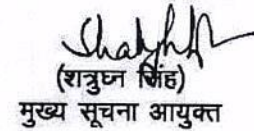 (शत्रुघ्न सिंह)
मुख्य सूचना आयुक्त